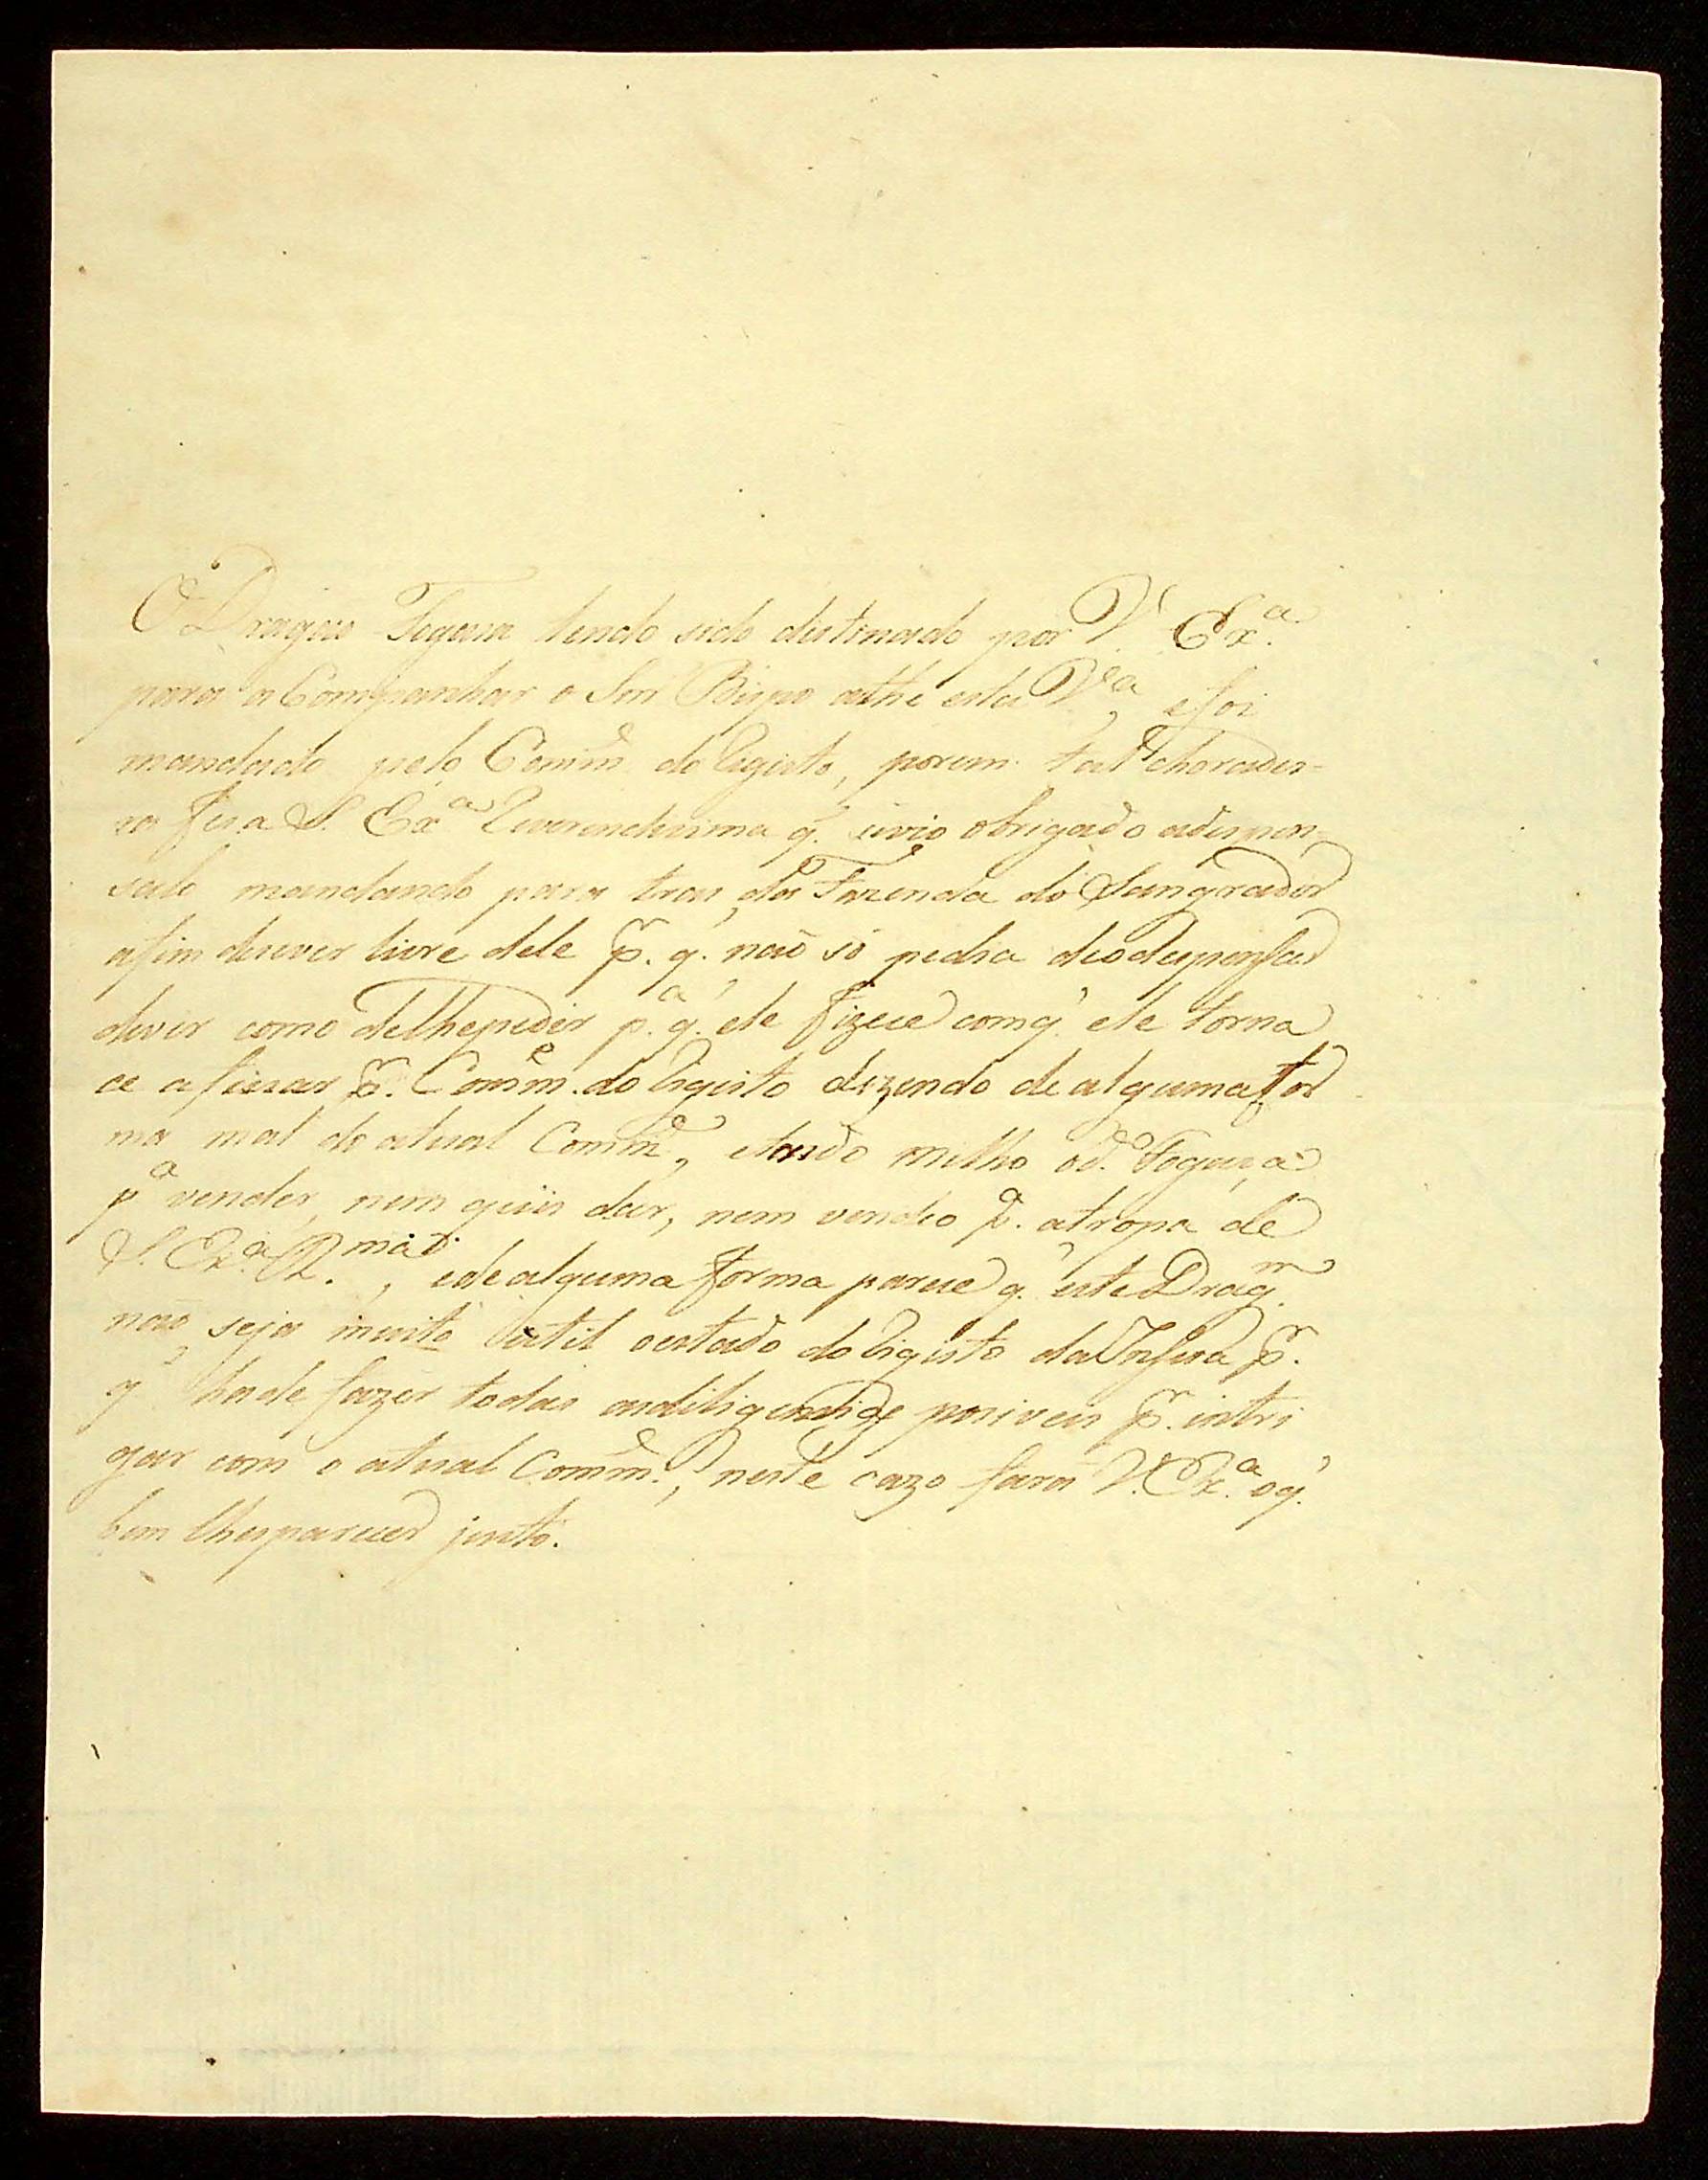 O Dragão Fogaça tendo sido distinado por V. Ex.ª
para aCompanhar o Snr Bispo athe esta Vª, e foi
mandado pelo Comm.e do Rigisto, porem tal choradei=
ra fes a S. Exª Reverendicima q. sivio obrigado adispen=
salo mandando para tras, da Fazenda do Sangrador
afim desever livre dele p.r q. não só pedia
devir como delhepedir p.ª q. ele fizece comq. ele torna
ce aficar p.r Comm.e do Rigisto dizendo dealguma for
ma mal do atual Comm.e, etendo milho od.º Fogaça
pª vender, nem quis dar, nem vendeo p.ª atropa de
S. Ex.ª R.ma, edealguma forma parece q. este Drag.m
não seja muito util oestado do Rigisto da p.r
q hade fazer todas asdiligencias posiveis p.r intri
gar com o atual Comm.e, neste cazo fará V. Ex.ª oq.
bem lhesparecer justo.